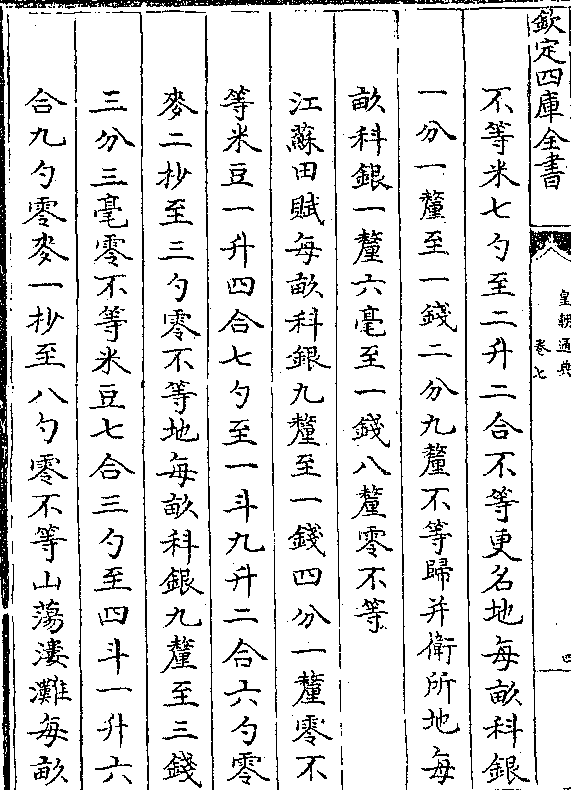 欽定四庫全書
皇朝通典
卷七
四
不等米七勺至二升二合不等更名地每畝科銀
一分一釐至一錢二分九釐不等歸并衛所地每
畝科銀一釐六毫至一錢八釐零不等
江蘇田賦每畝科銀九釐至一錢四分一釐零不
等米豆一升四合七勺至一斗九升二合六勺零
麥二抄至三勺零不等地每畝科銀九釐至三錢
三分三毫零不等米豆七合三勺至四斗一升六
合九勺零麥一抄至八勺零不等山蕩漊灘每畝